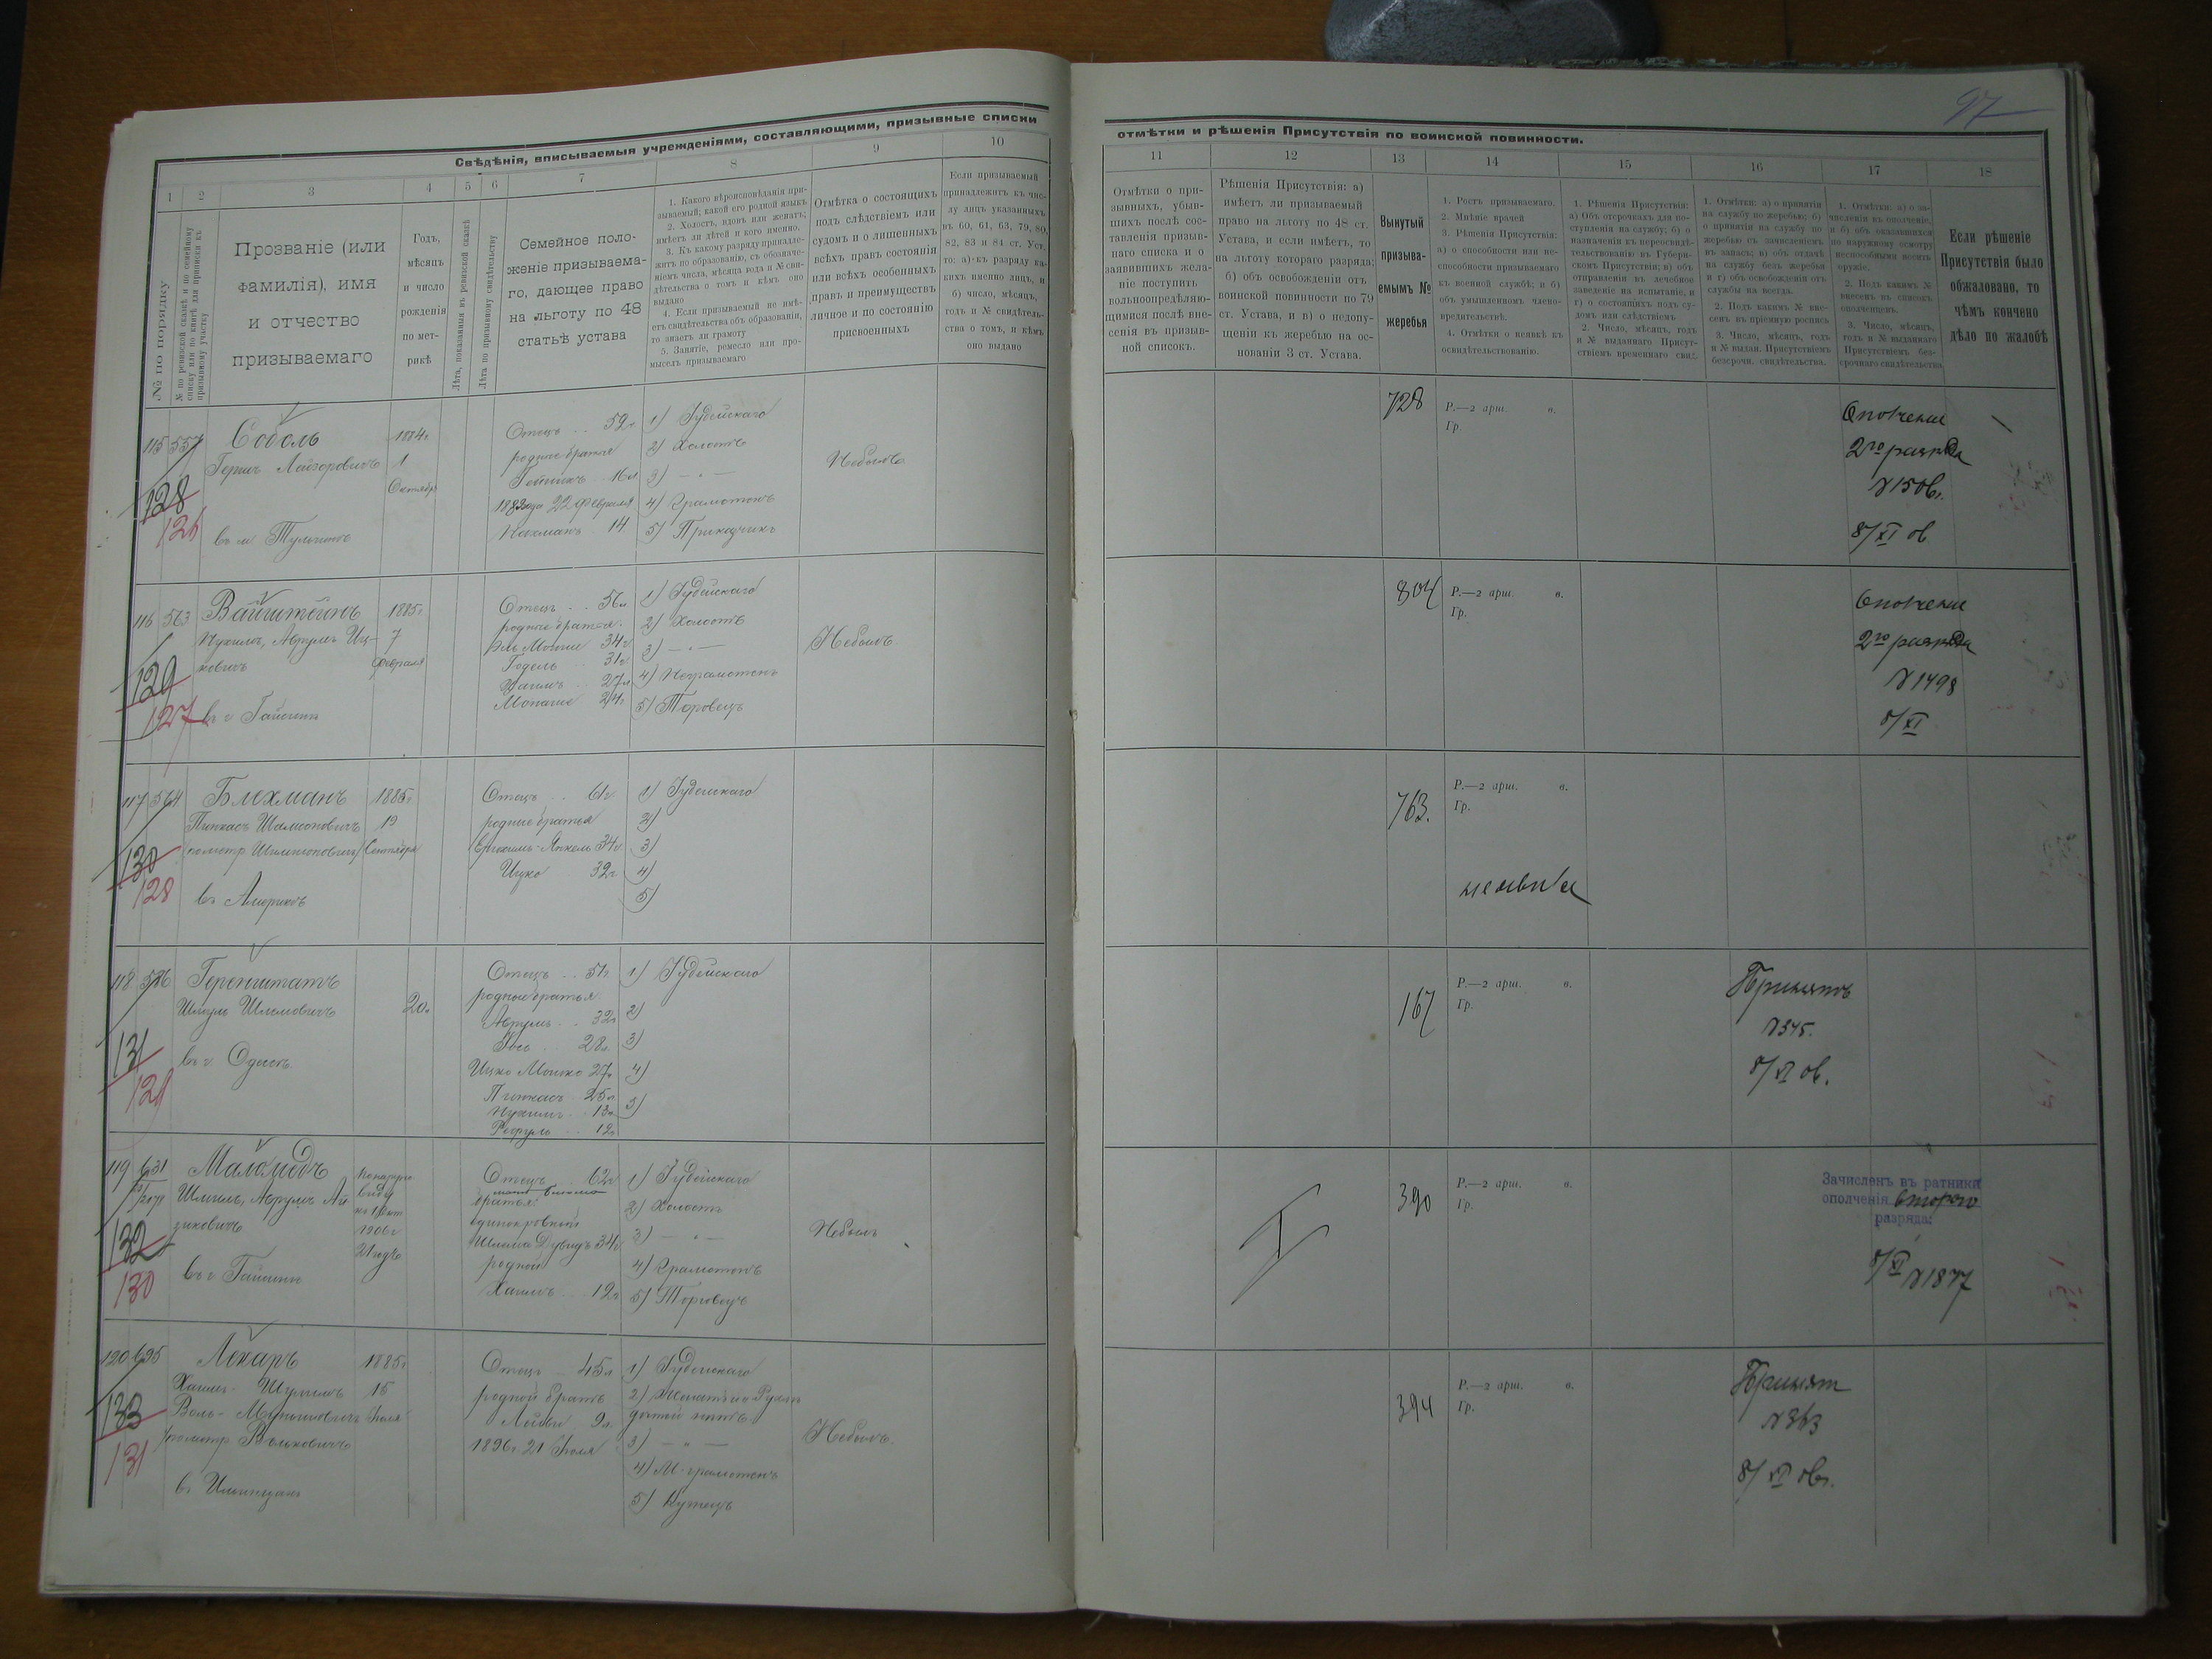 97
Свѣдѣнія, вписываемыя учрежденіями, составляющими, призывные списки
отмѣтки и рѣшенія Присутствія по воинской повинности.
1 2 3 4 5 6 7 8 9 10
11 12 13 14 15 16 17 18
№ по порядку
№ по ревизской сказкѣ и по семейному
списку или по книгѣ для приписки къ
призывному участку
Прозваніе (или
фамилія), имя
и отчество
призываемаго
Годъ,
мѣсяцъ
и число
рожденія
по мет-
рикѣ
Лѣта, показанныя въ ревизской сказкѣ
Лѣта по призывному свидѣтельству
Семейное поло-
женіе призываема-
го, дающее право
на льготу по 48
статьѣ устава
1. Какого вѣроисповѣданія при-
зываемый; какой его родной языкъ
2. Холостъ, вдовъ или женатъ;
имѣетъ ли дѣтей и кого именно.
3. Къ какому разряду принадле-
житъ по образованію, съ обозначе-
ніемъ числа, мѣсяца года и № сви-
дѣтельства о томъ и кѣмъ оно
выдано
4. Если призываемый не имѣ-
етъ свидѣтельства объ образованіи,
то знаетъ ли грамоту
5. Занятіе, ремесло или про-
мыселъ призываемаго
Отмѣтка о состоящихъ
подъ слѣдствіемъ или
судомъ и о лишенныхъ
всѣхъ правъ состоянія
или всѣхъ особенныхъ
правъ и преимуществъ
личное и по состоянію
присвоенныхъ
Если призываемый
принадлежитъ къ чис-
лу лицъ указанныхъ
въ 60, 61, 63, 79, 80,
82, 83 и 84 ст. Уст.,
то: а) къ разряду ка-
кихъ именно лицъ, и
б) число, мѣсяцъ,
годъ и № свидѣтель-
ства о томъ, и кѣмъ
оно выдано
Отмѣтки о при-
зывныхъ, убыв-
шихъ послѣ сос-
тавленія призыв-
наго списка и о
заявившихъ жела-
ніе поступить
вольноопредѣляю-
щимися послѣ вне-
сенія въ призыв-
ной списокъ.
Рѣшенія Присутствія: а)
имѣетъ ли призываемый
право на льготу по 48 ст.
Устава, и если имѣетъ, то
на льготу котораго разряда;
б) объ освобожденіи отъ
воинской повинности по 79
ст. Устава, и в) о недопу-
щеніи къ жеребью на ос-
нованіи 3 ст. Устава.
Вынутый
призыва-
емымъ №
жеребья
1. Ростъ призываемаго.
2. Мнѣніе врачей
3. Рѣшенія Присутствія:
а) о способности или не-
способности призываемаго
къ военной службѣ; и б)
объ умышленномъ члено-
вредительствѣ.
4. Отмѣтки о неявкѣ къ
освидѣтельствованію.
1. Рѣшенія Присутствія:
а) Объ отсрочкахъ для по-
ступленія на службу; б) о
назначеніи къ переосвидѣ-
тельствованію въ Губерн-
скомъ Присутствіи; в) объ
отправленіи въ лечебное
заведеніе на испытаніе, и
г) о состоящихъ подъ су-
домъ или слѣдствіемъ
2. Число, мѣсяцъ, годъ
и № выданнаго Присут-
ствіемъ временнаго свид.
1. Отмѣтки: а) о принятіи
на службу по жеребью; б)
о принятіи на службу по
жеребью съ зачисленіемъ
въ запасъ; в) объ отдачѣ
на службу безъ жеребья
и г) объ освобожденіи отъ
службы на всегда.
2. Подъ какимъ № вне-
сенъ въ пріемную роспись
3. Число, мѣсяцъ, годъ
и № выдан. Присутствіемъ
безсрочн. свидѣтельства.
1. Отмѣтки: а) о за-
численіи въ ополченіе,
и б) объ оказавшихся
по наружному осмотру
неспособными носить
оружіе.
2. Подъ какимъ №
внесенъ въ списокъ
ополченцевъ.
3. Число, мѣсяцъ,
годъ и № выданнаго
Присутствіемъ без-
срочнаго свидѣтельства
Если рѣшеніе
Присутствія было
обжаловано, то
чѣмъ кончено
дѣло по жалобѣ
115 557 Соболь 1884г.
Гершъ Лейзоровичъ 1
Октября
128
126
Отецъ 52г
родные братья
16л
22 Февраля
Нахманъ 14
1) Іудейскаго
2) Холостъ
3) — " —
4) Грамотенъ
5) Прикащикъ
Небылъ
728
Р.—2 арш. в.
Гр.
Ополчение
2го разряда
№ 1506
8/XI 06
116 563 Вайнштейнъ 1885г
Нухимъ, Аврумъ Иц-
ковичъ
7
февраля
129
127
въ г Гайсинѣ
Отецъ 56л
родные братья
34г
Годель 31г
Хаимъ 27л
24г
1) Іудейскаго
2) Холостъ
3) — " —
4) Неграмотенъ
5) Торговецъ
Небылъ
804
Р.—2 арш. в.
Гр.
Ополчение
2го разряда
№ 1498
8/XI
117 564 Блехманъ 1885г
Пинкасъ Шамсоновичъ 19
Сентября
130
128
въ Америкѣ
Отецъ 61г
родные братья
34г
Ицко 32г
1) Іудейскаго
2)
3)
4)
5)
763.
Р.—2 арш. в.
Гр.
неявился
118 586
Шмуль Шлемовичъ 20л
131
129
въ г. Одессѣ
Отецъ 51г
родные братья
Аврумъ 32г
28л
Ицко Мошко 27л
Пинкасъ 25л
Нухимъ 13л
12л
1) Іудейскаго
2)
3)
4)
5)
167
Р.—2 арш. в.
Гр.
Принятъ
№ 345.
8/XI 06.
119 631
Шмиль, Аврумъ Ай
зиковичъ
1906г
21 годъ
132
130
въ г. Гайсинѣ
Отецъ 62г
братья:
одинокровный
34г
родной
Хаимъ 12л
1) Іудейскаго
2) Холостъ
3) — " —
4) Грамотенъ
5) Торговецъ
Небылъ
I
390
Р.—2 арш. в.
Гр.
Зачисленъ въ ратники
ополченія второго
разряда:
8/XI № 1877
120 695 Лекаръ 1885г
15
Іюля
133
131
Отецъ 45л
родной братъ
9л.
1896г. 21 Іюля
1) Іудейскаго
3) — " —
5) Купецъ
Небылъ.
394
Р.—2 арш. в.
Гр.
Принят
№ 363
8/XI 06г.